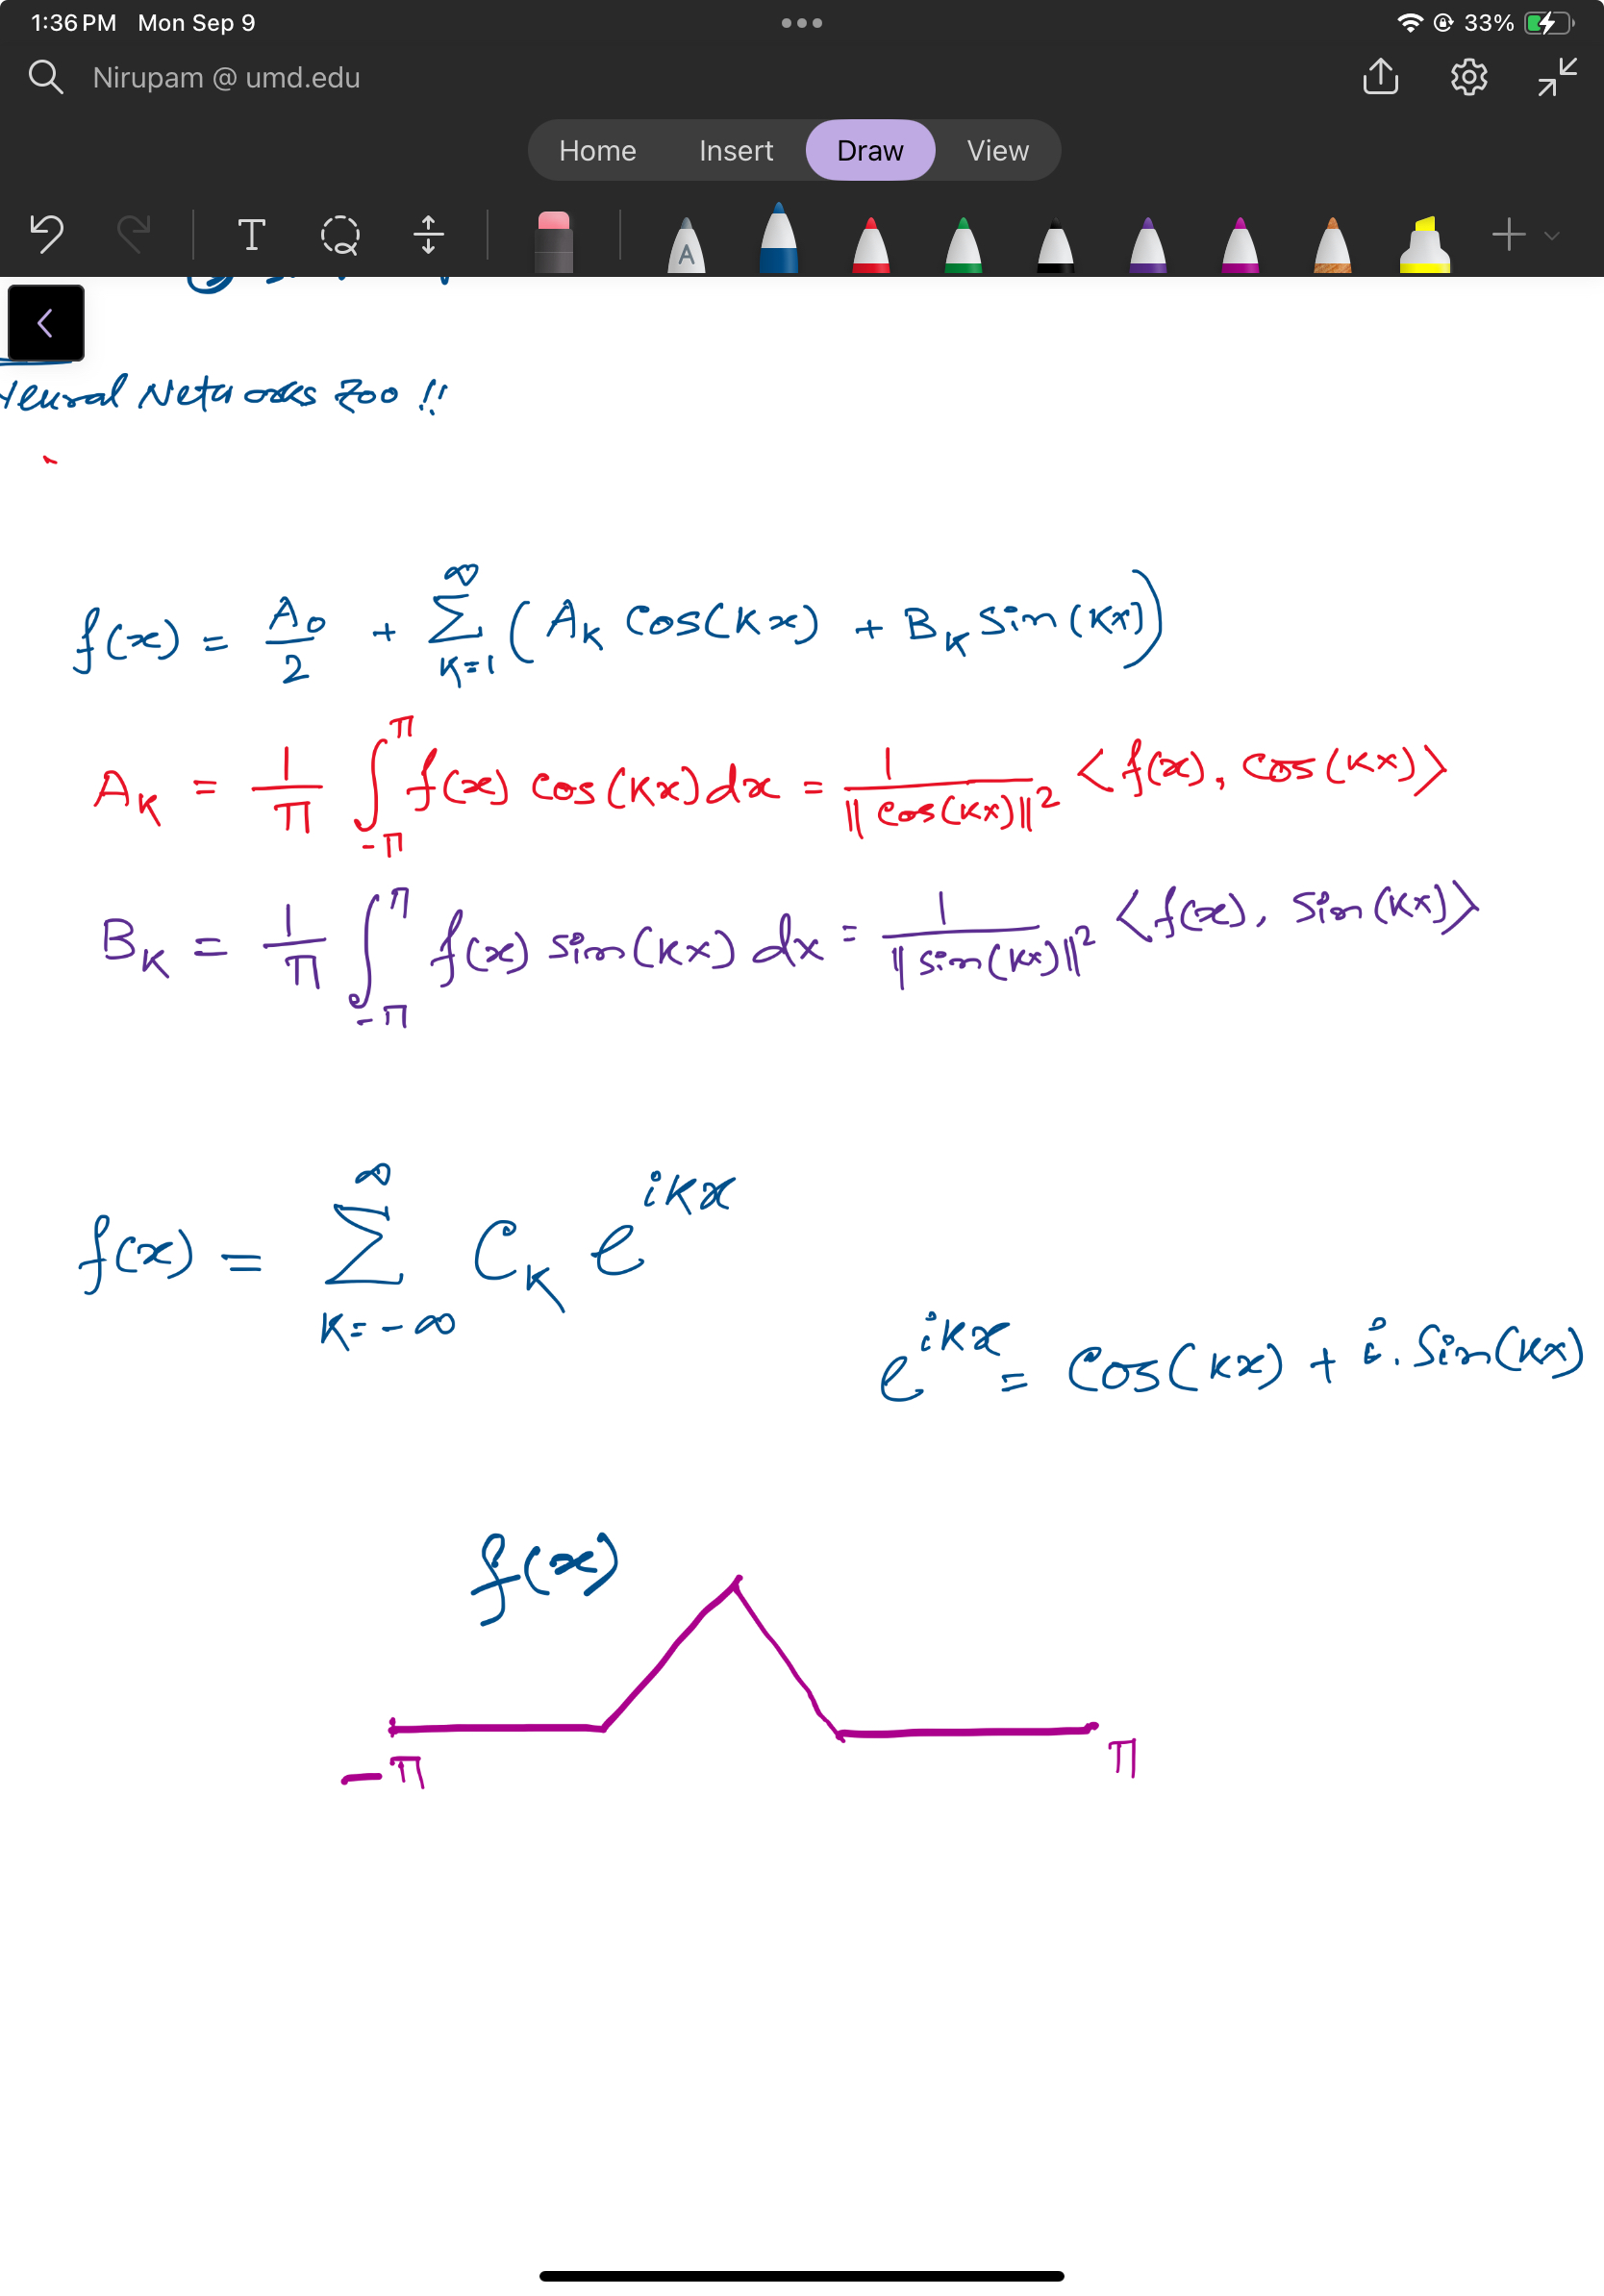 1:36 PM Mon Sep 9 33%
Nirupam @ umd.edu
Home Insert Draw View
T A
Neural Networks Zoo !!
f(x) = A₀/2 + ∑_{K=1}^{∞} (A_K cos(Kx) + B_K sin(Kx))
A_K = 1/π ∫_{-π}^{π} f(x) cos(Kx) dx = 1/‖cos(Kx)‖² ⟨f(x), cos(Kx)⟩
B_K = 1/π ∫_{-π}^{π} f(x) sin(Kx) dx = 1/‖sin(Kx)‖² ⟨f(x), sin(Kx)⟩
f(x) = ∑_{K=-∞}^{∞} C_K e^{iKx}
e^{iKx} = cos(Kx) + i. sin(Kx)
f(x)
-π π